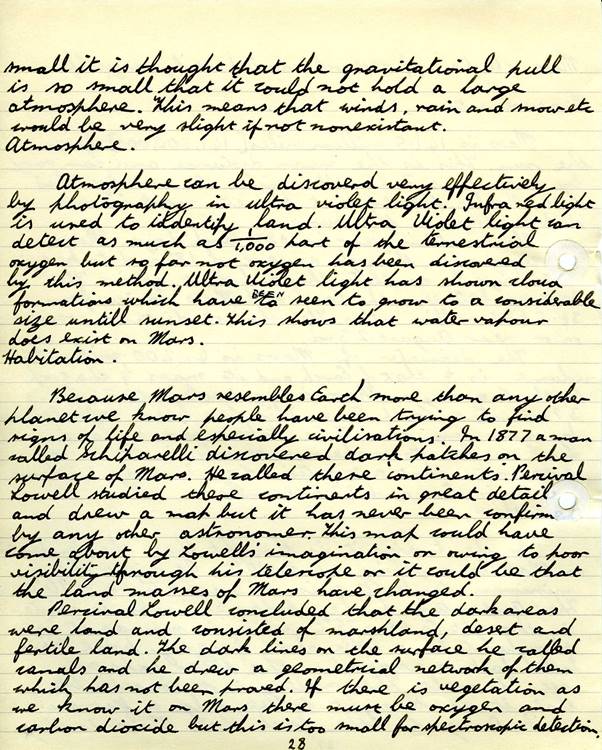 small it is thought that the gravitational pull
is so small that it could not hold a large
atmosphere. This means that winds, rain and snow etc
would be very slight if not nonexistant.
Atmosphere.
Atmosphere can be discoverd very effectively
by photography in ultra violet light. Infra red light
is used to identify land. Ultra Violet light can
detect as much as 1/1,000 part of the terrestrial
oxygen but so far not oxygen has been discovered
by this method. Ultra Violet light has shown cloud
formations which have BEEN seen to grow to a considerable
size untill sunset. This shows that water vapour
does exist on Mars.
Habitation.
Because Mars resembles Earth more than any other
planet we know people have been trying to find
signs of life and especially civilisations. In 1877 a man
called Schiparelli discovered dark patches on the
surface of Mars. He called these 'continents'. Percival
Lowell studied these continents in great detail
and drew a map but it has never been confirm
by any other astronomer. This map could have
come about by Lowells' imagination or owing to poor
visibility through his telescope or it could be that
the land masses of Mars have changed.
Percival Lowell concluded that the dark areas
were land and consisted of marshland, deset and
fertile land. The dark lines on the surface he called
canals and he drew a geometrical network of them
which has not been proved. If there is vegetation as
we know it on Mars there must be oxygen and
carbon diocide but this is too small for spectroscopic detection.
28